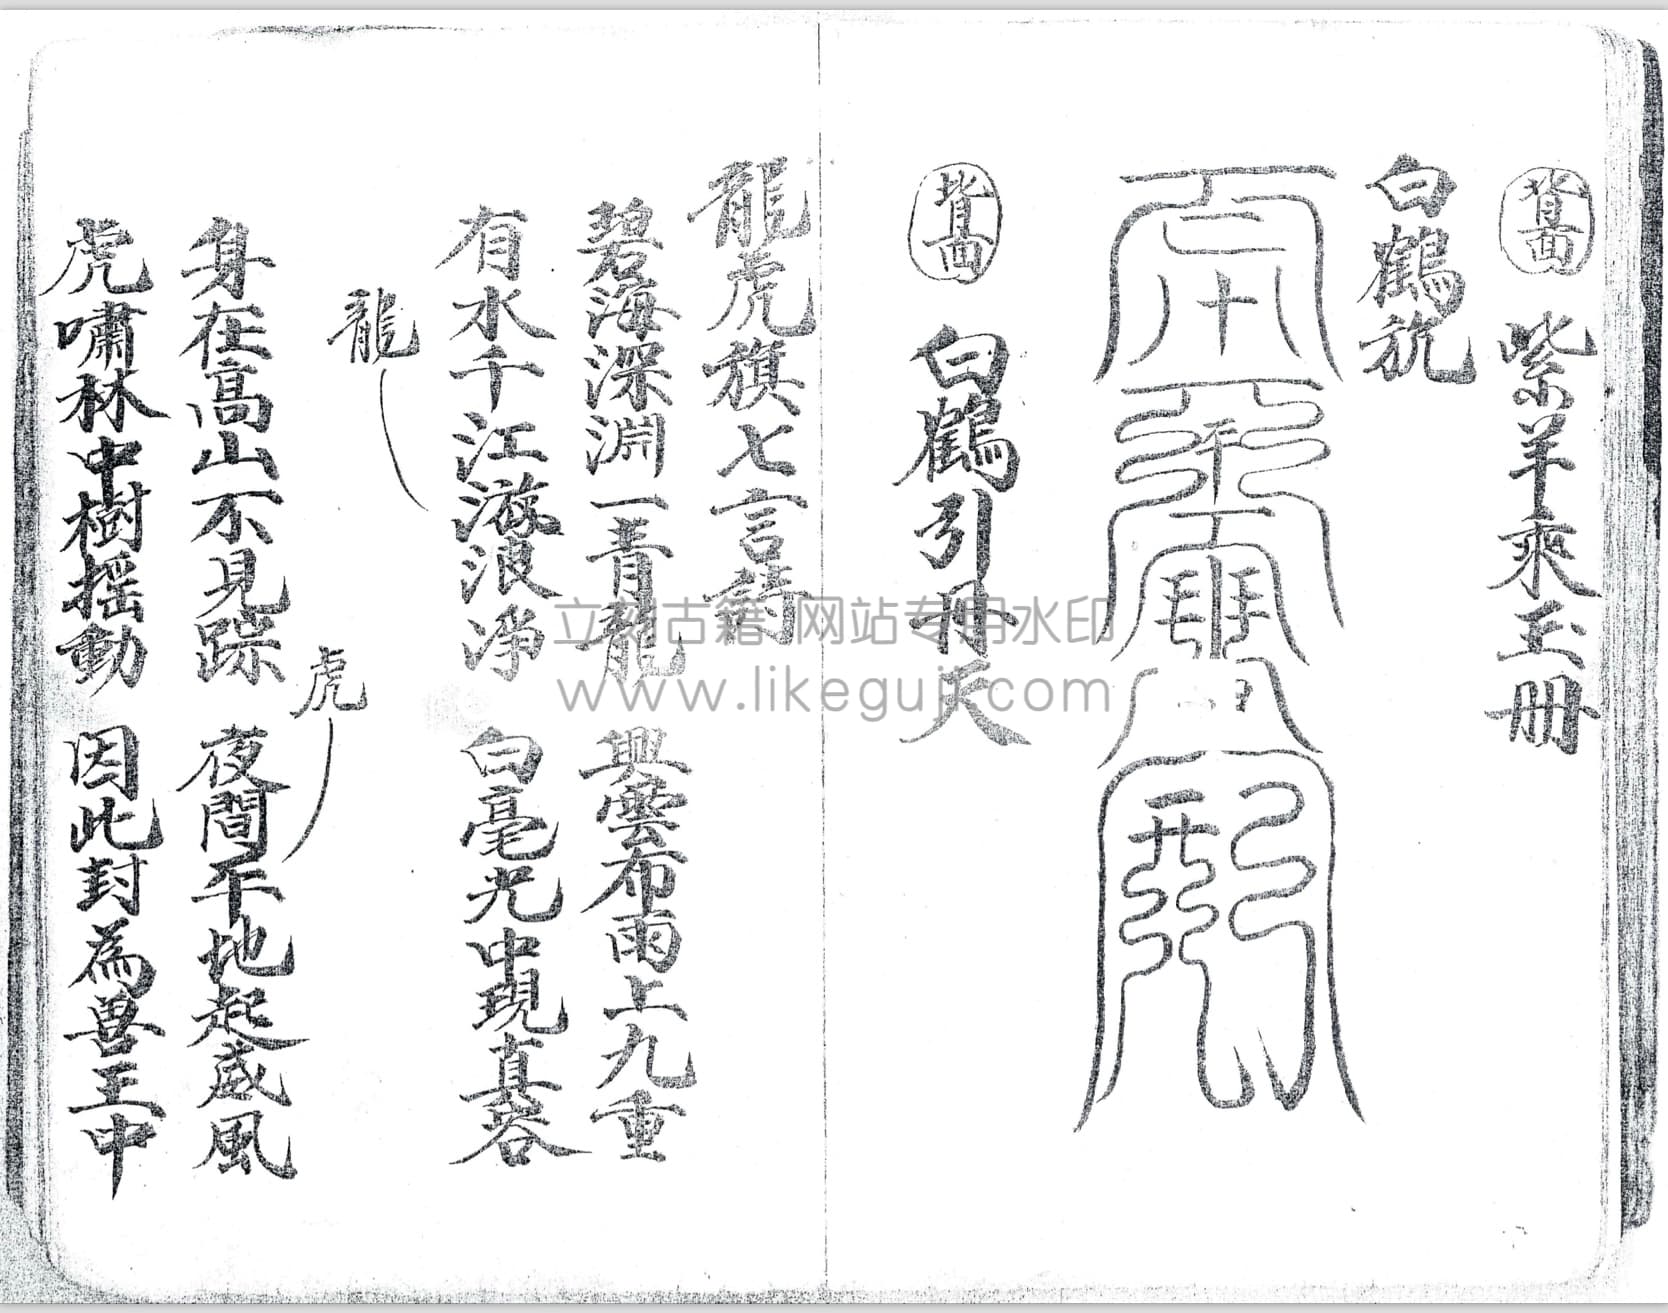 背面 紫羊乘玉冊
白鶴旐
背面 白鶴引冊天
龍虎旗七言
碧海深淵一青龍 興雲布雨上九重
有水千江滋浪净 白毫光中現真容
龍
虎
身在高山不見踪 夜間平地起威風
虎嘯林中樹摇動 因此封為兽王中
立刻古籍 网站专用水印
www.likeguji.com